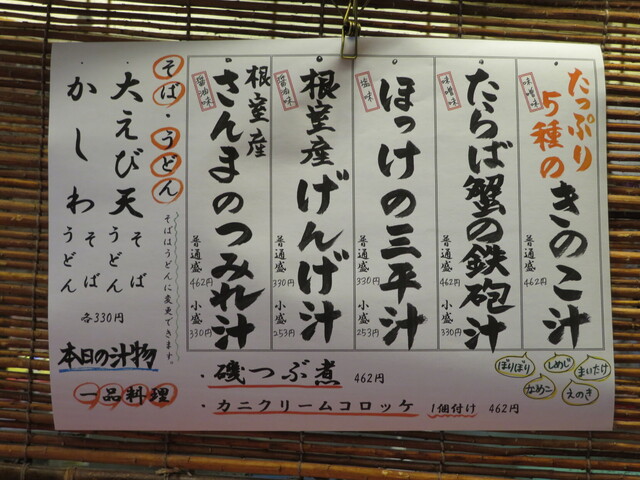 たっぷり
5種の
きのこ汁
味噌味
普通盛 462円
たらば蟹の鉄砲汁
味噌味
普通盛 462円
小盛 330円
ほっけの三平汁
塩味
普通盛 330円
小盛 253円
根室産
げんげ汁
醤油味
普通盛 330円
小盛 253円
根室産
さんまのつみれ汁
醤油味
普通盛 462円
小盛 330円
そば・うどん
そばはうどんに変更できます。
大えび天 そば うどん
かしわ そば うどん
各330円
本日の汁物
一品料理
・磯つぶ煮 462円
・カニクリームコロッケ 1個付け 462円
ぼりぼり
しめじ
まいたけ
なめこ
えのき